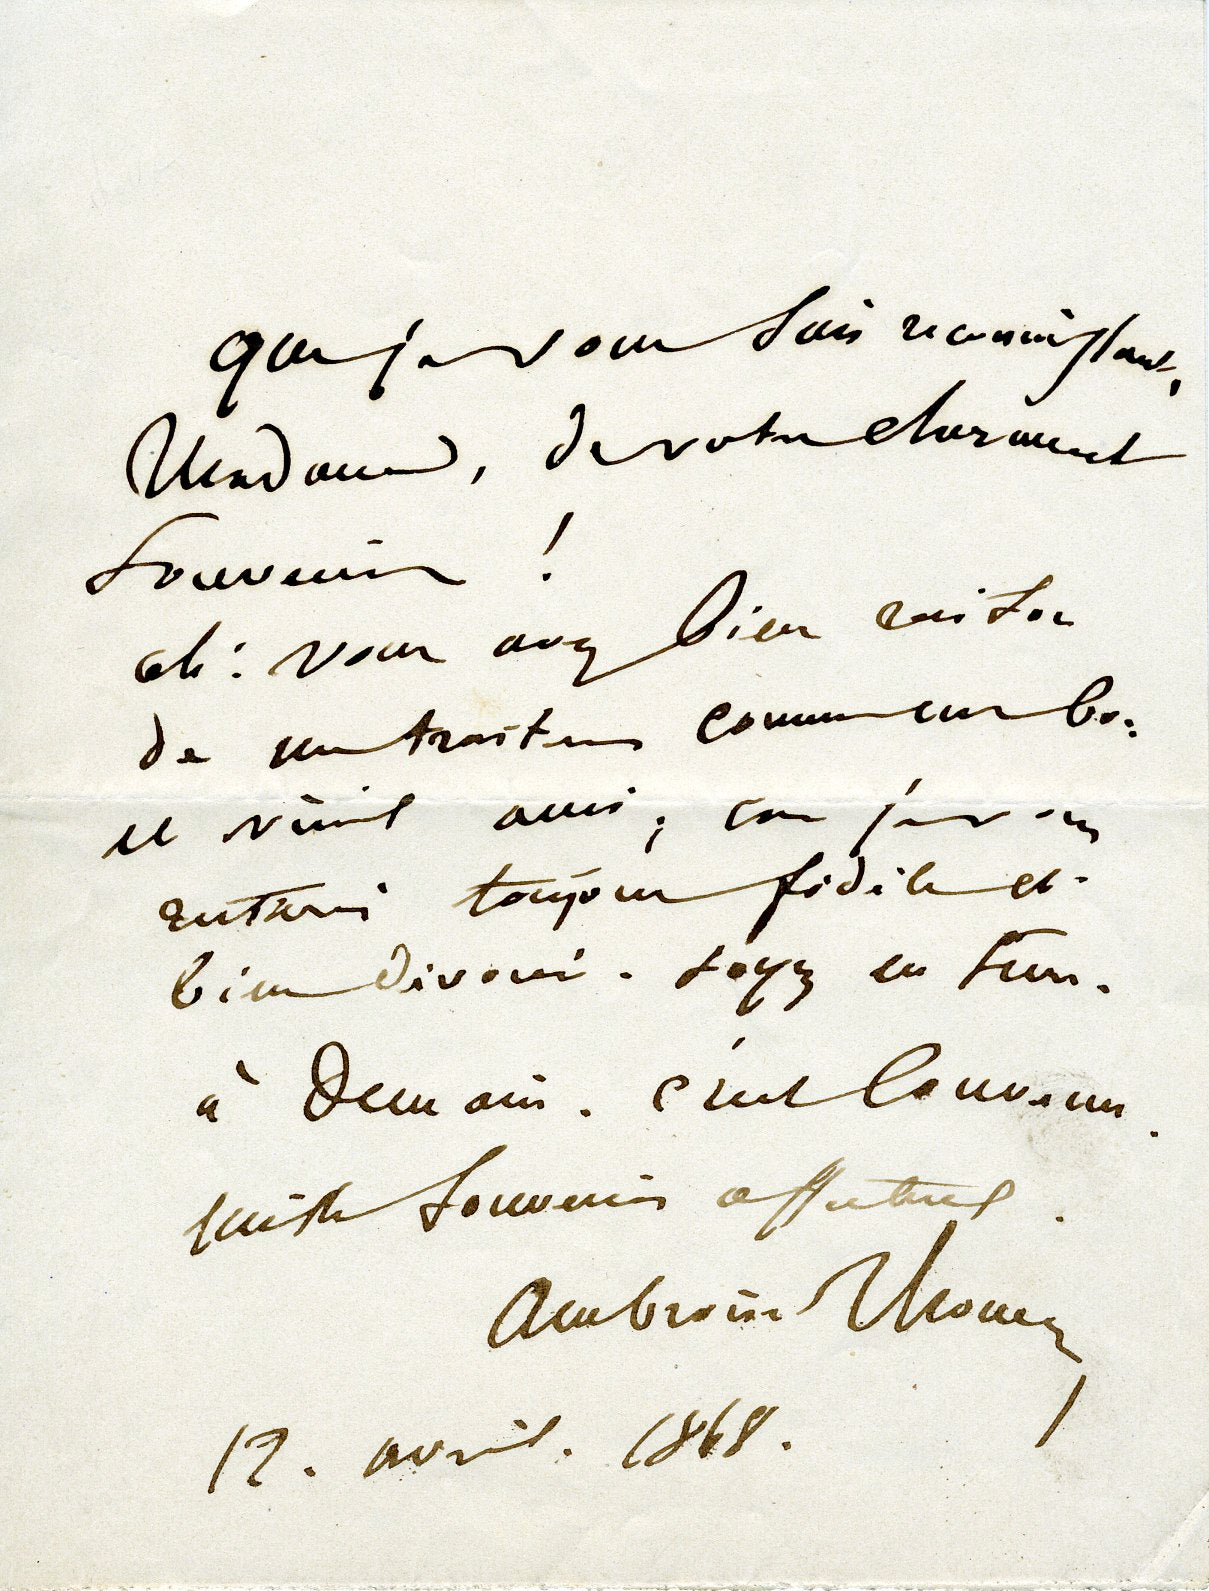 Que je vous suis reconnaissant,
Madame, de votre charmant
souvenir !
ah ! vous avez bien raison
de me traiter comme un bon
et vieil ami, car je vous
resterai toujours fidèle et
bien dévoué. soyez en sûre.
à Demain. c'est convenu.
mille souvenirs affectueux.
Ambroise Thomas
12. avril. 1868.